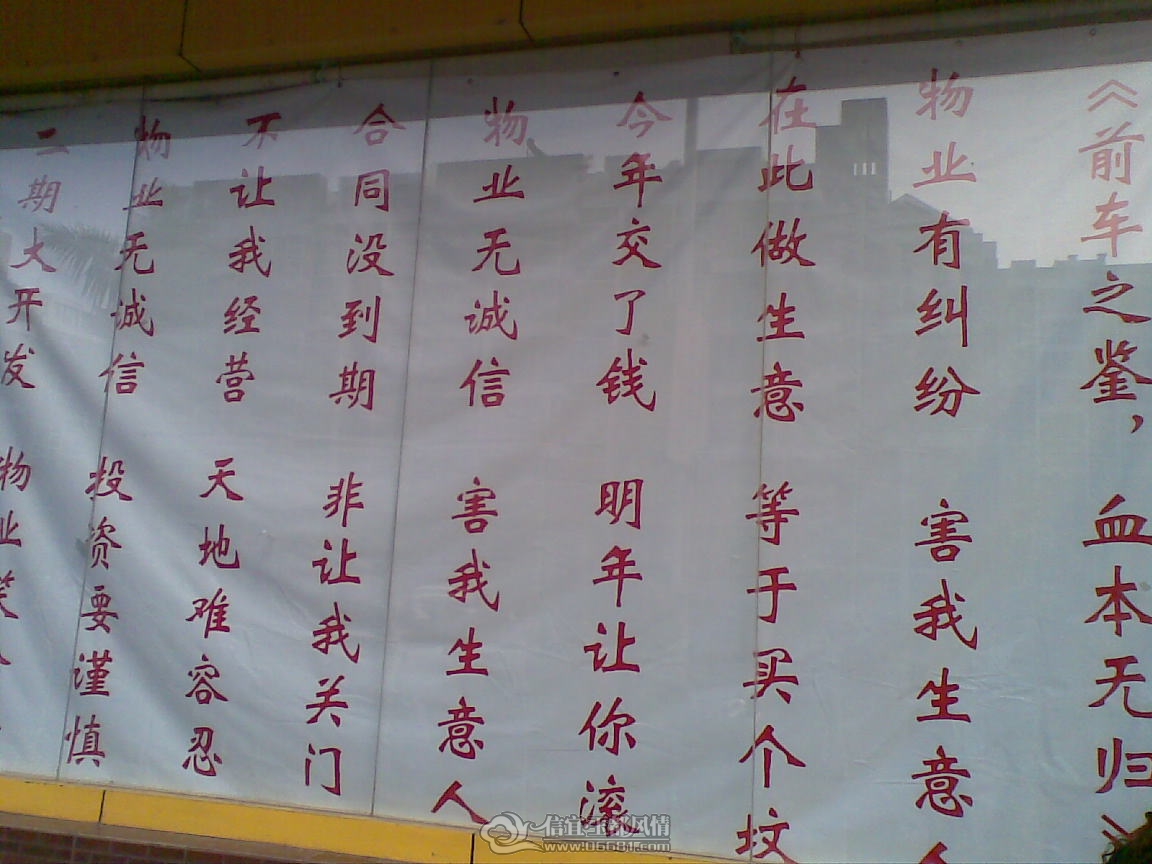 《前车之鉴，血本无归》
物业有纠纷 害我生意人
在此做生意 等于买个坟
今年交了钱 明年让你滚
物业无诚信 害我生意人
合同没到期 非让我关门
不让我经营 天地难容忍
物业无诚信 投资要谨慎
二期大开发 物业笑
信宜
风情
www.06681.com